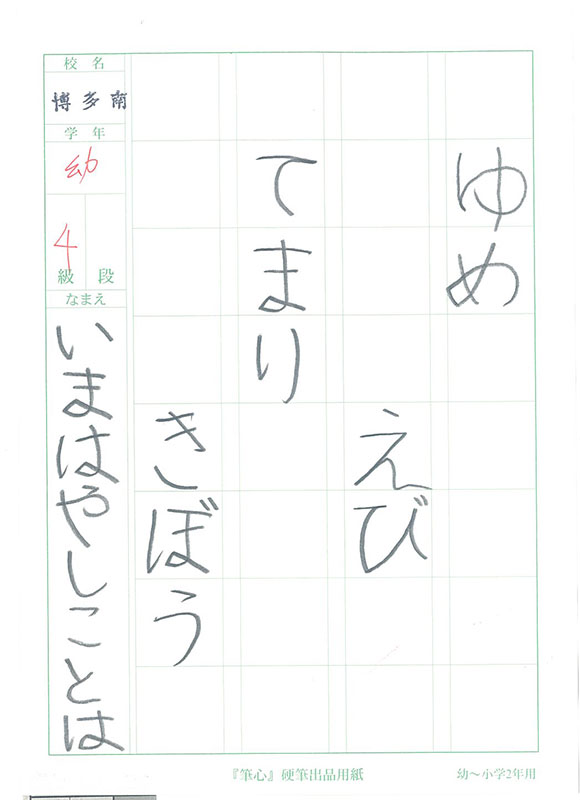 ゆめ
えび
てまり
きぼう
校名
博多南
学年
幼
4
級 段
なまえ
いまはやしことは
『筆心』硬筆出品用紙
幼～小学2年用